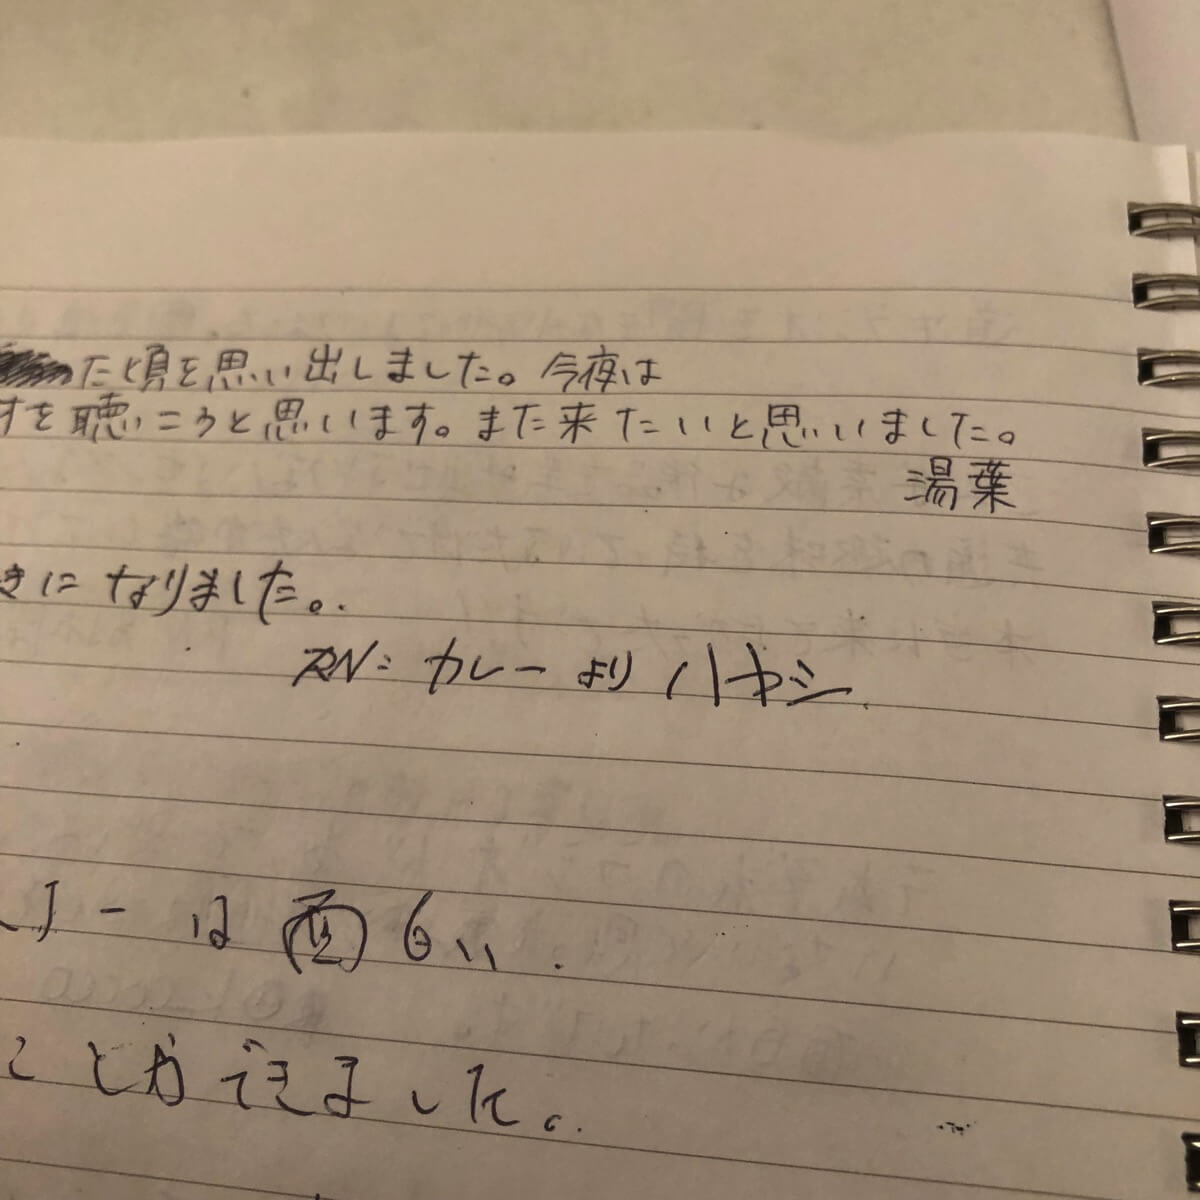 た頃を思い出しました。今夜は
すを聴いこうと思います。また来たいと思いました。
湯葉
きになりました。
RN: カレーよりハヤシ
ーは面白い.
ことができました。